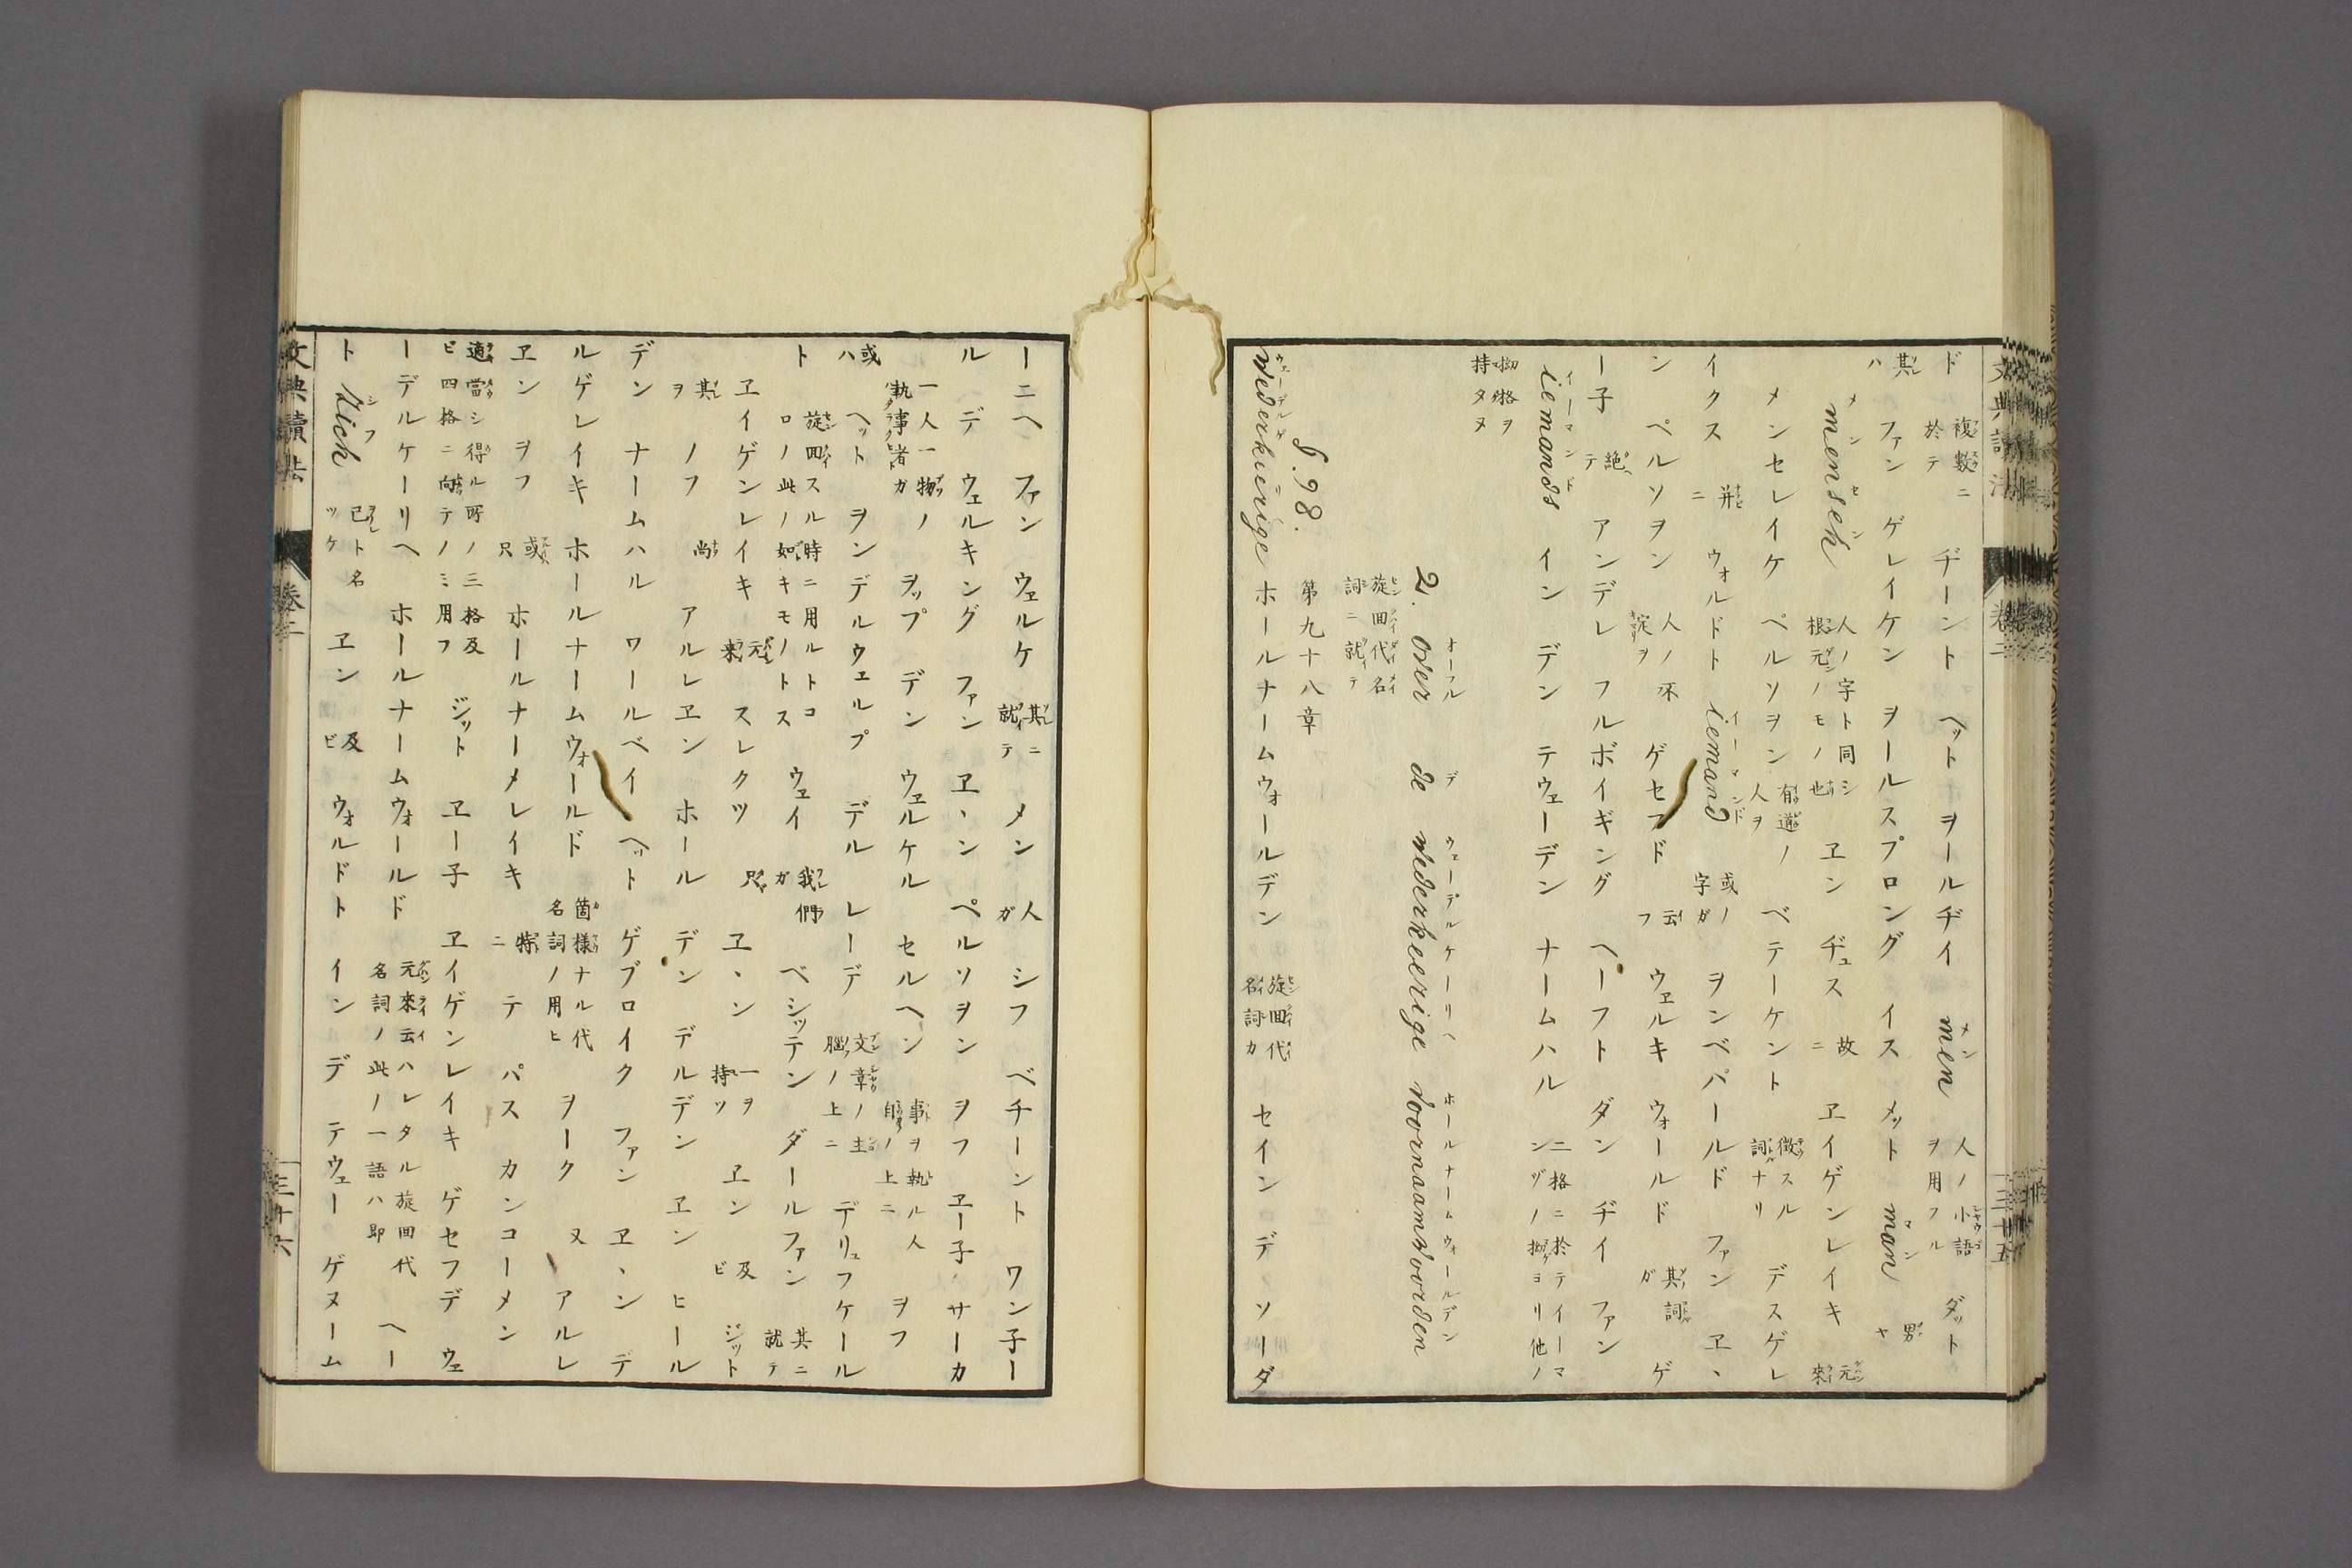 ド 複數ニ於テ ヂーント ヘット ヲールヂイ men メン 人ノ小語ヲ用フル ダット
其ハ ファン ゲレイケン ヲールスプロング イス メット man マン 男ヤ
mensch メンセン 人ノ字ト同シ根元ノモノ也 ヱン ヂュス 故ニ ヱイゲンレイキ 元來
メンセレイケ ペルソヲン 人ヲ ベテーケント 徴スル詞ナリ デスゲレ
イクス 并ニ ウォルドト iemand イーマンド 或ノ字ガ ヲンベパールド ファン ヱヽ
ン ペルソヲン 人ノ不定ヲ ゲセフド 云フ ウェルキ ウォールド 其詞ガ ゲ
ー子 絶テ アンデレ フルボイギング ヘーフト ダン ヂイ ファン
iemands イーマンド イン デン テウェーデン ナームハル 二格ニ於テイーマンヅノ拗ヨリ他ノ
拗格ヲ持タヌ
2. over de wederkeerige voornaamwoorden オーフル デ ウェーデルケーリヘ ホールナームウォールデン
旋回代名詞ニ就テ
§. 98. 第九十八章
wederkeerige ホールナームウォールデン 旋回代名詞カ セイン デ ソーダ
文典讀法 卷二 三十五
ーニヘ ファン ウェルケ 其ニ就テ メン 人ガ シフ ベヂーント ワン子ー
ル デ ウェルキング ファン ヱヽン ペルソヲン ヲフ ヱー子 サーカ
一人一物ノ執事者ガ ヲップ デン ウェルケル セルヘン 事ヲ執ル人自ノ上ニ ヲフ
或ハ ヘット ヲンデルウェルプ デル レーデ 文章ノ主腦ノ上ニ デリュフケール
ト 旋回スル時ニ用ルトコロノ此ノ如キモノトス ウェイ 我們ガ ベシッテン ダールファン 其ニ就テ
ヱイゲンレイキ 元來 スレクツ 只 ヱヽン 一ヲ持ツ ヱン 及ビ ジット
其ヲ ノフ 尚 アルレヱン ホール デン デルデン ヱン ヒール
デン ナームハル ワールベイ ヘット ゲブロイク ファン ヱヽン デ
ルゲレイキ ホールナームウォールド 箇樣ナル代名詞ノ用ヒ ヲーク 又 アルレ
ヱン ヲフ 或只 ホールナーメレイキ 特ニ テ パス カンコーメン
適當シ得ル所ノ三格及ビ四格ニ向テノミ用フ ジット ヱー子 ヱイゲンレイキ ゲセフデ ウェ
ーデルケーリヘ ホールナームウォールド 元來云ハレタル旋回代名詞ノ此ノ一語ハ即 ヘー
ト zich シフ 已ト名ツケ ヱン 及ビ ウォルドト イン デ テウェー ゲヌーム
文典讀法 卷二 三十六